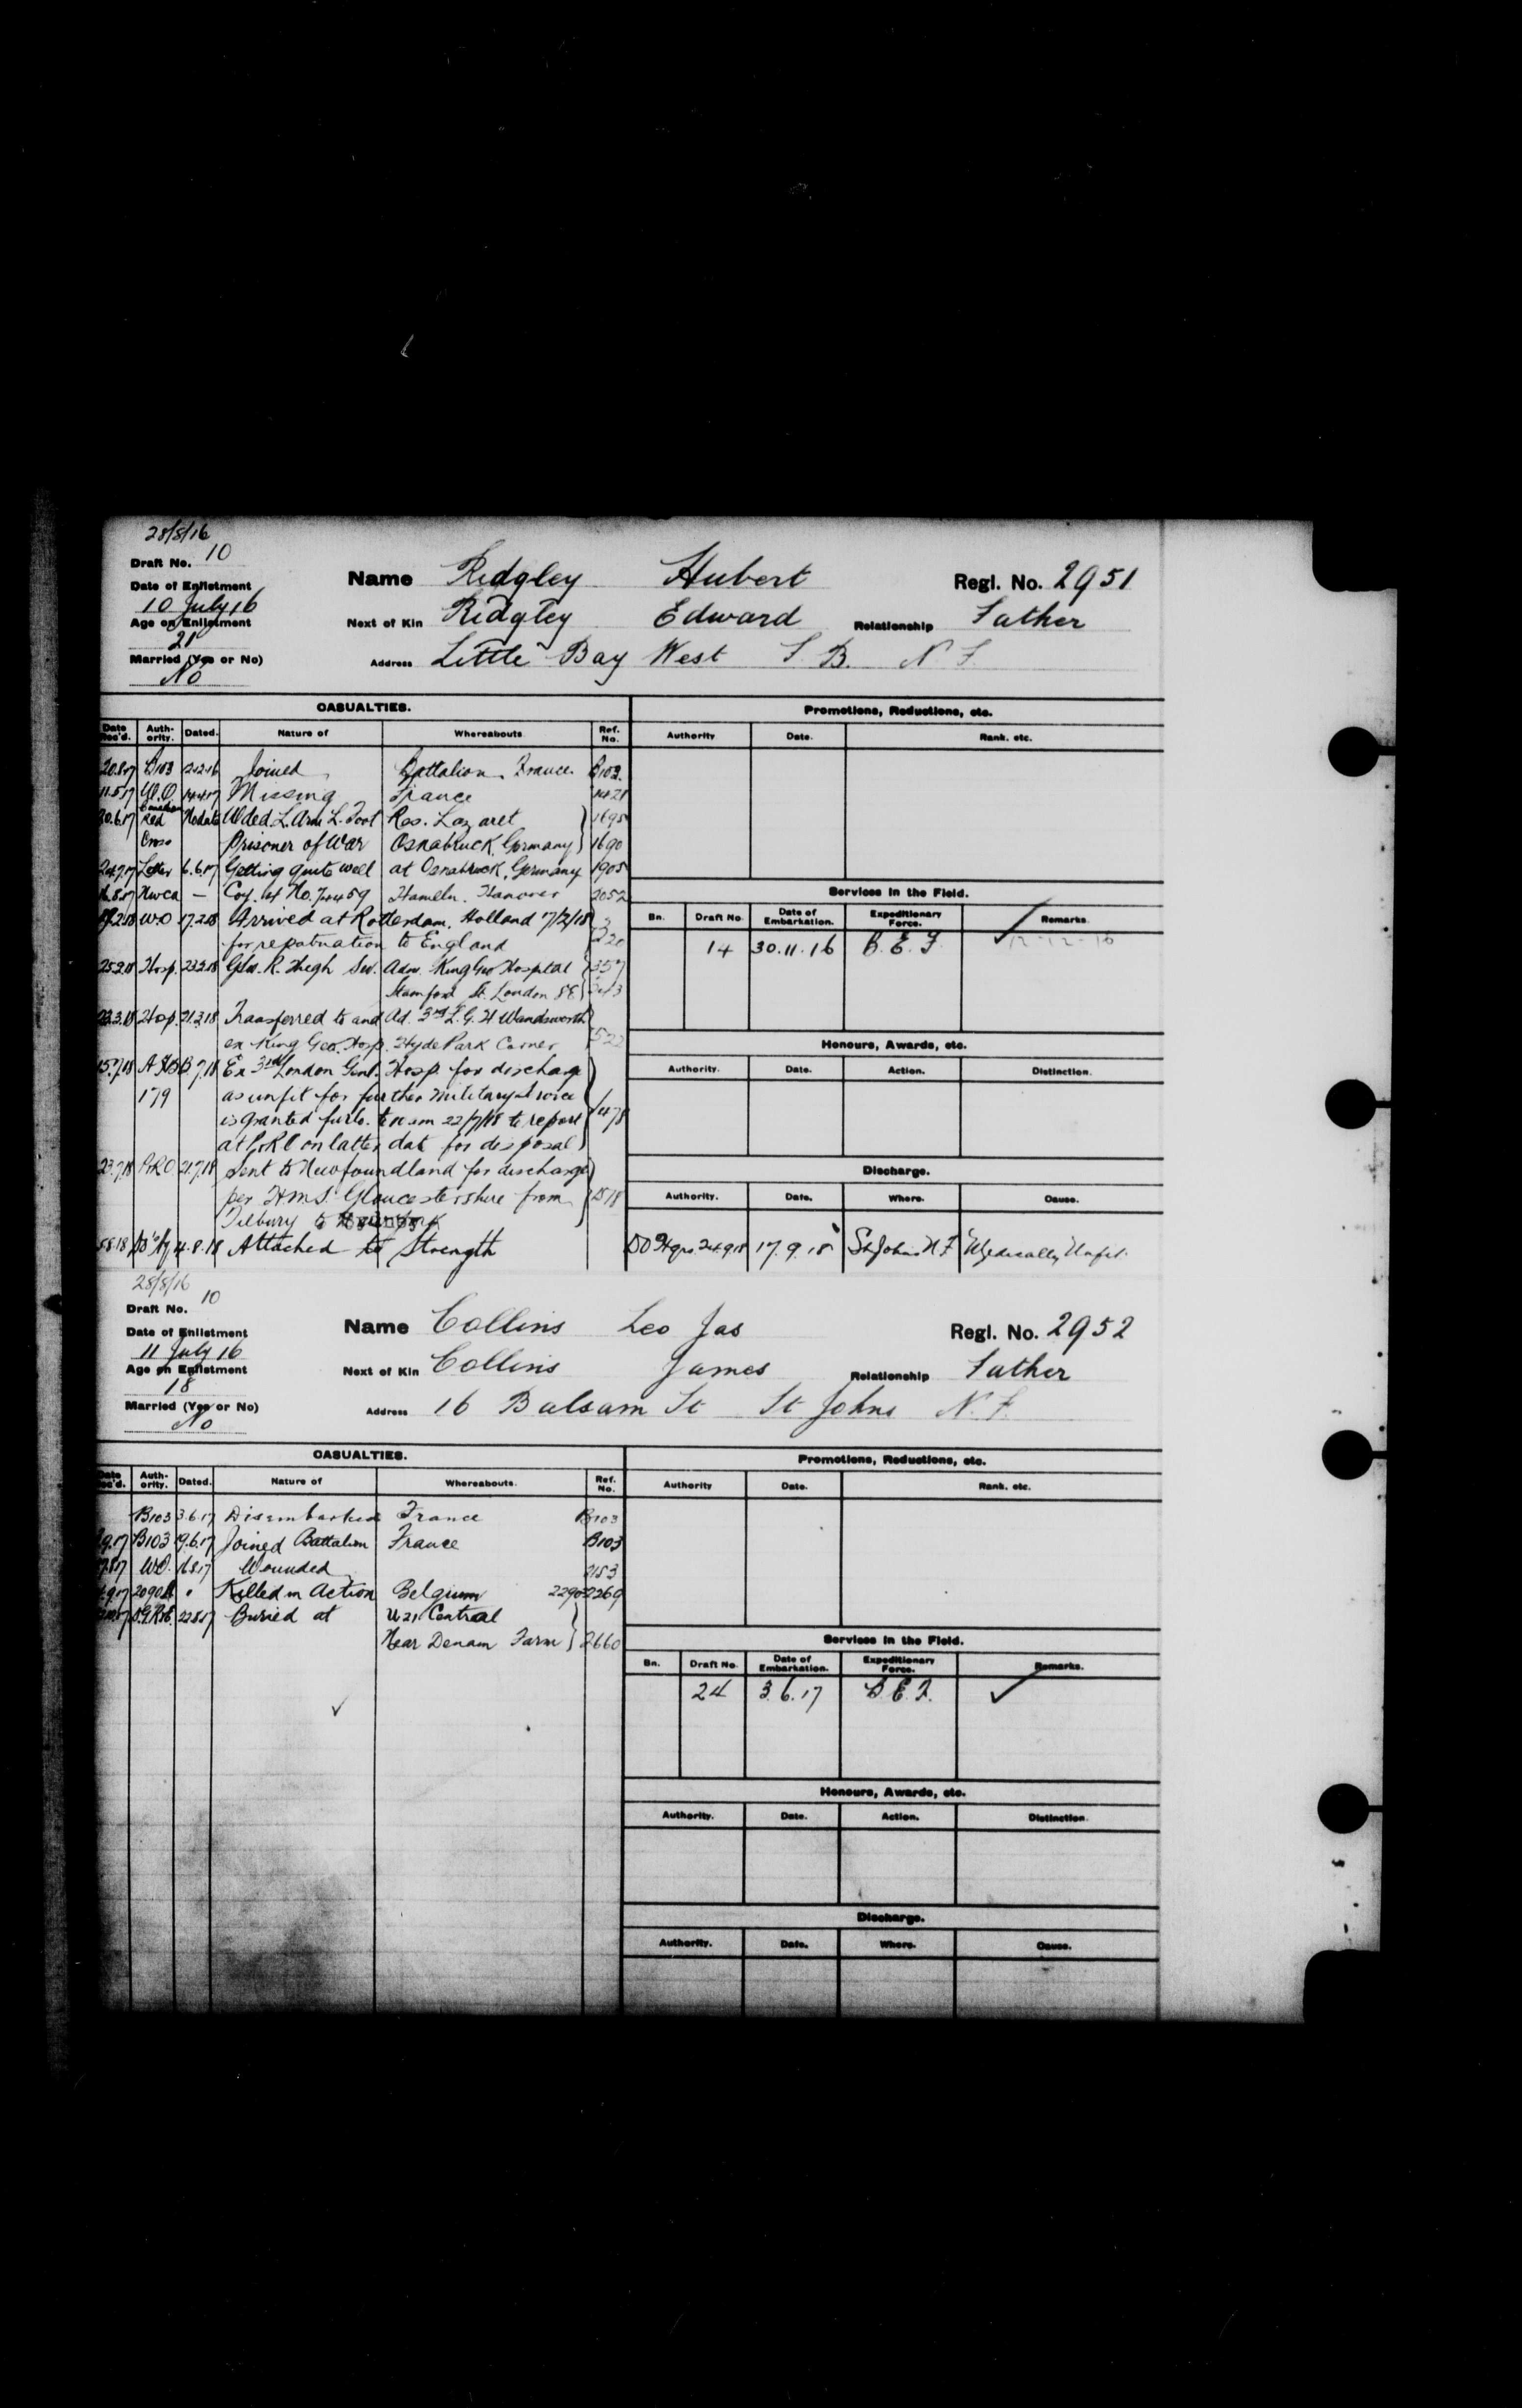 28/8/16
Draft No. 10
Date of Enlistment
10 July 16
Age on Enlistment
21
Married (Yes or No)
No
Name Ridgley Hubert Regl. No. 2951
Next of Kin Ridgley Edward Relationship Father
Address Little Bay West F. B. N F.
CASUALTIES.
Date Rec'd. Auth-ority. Dated. Nature of Whereabouts Ref. No.
B103 Joined Battalion France. B103.
11.5.17 W.O. 14.4.17 Missing France 1421
30.6.17 Canadian Red No date Wded. L. Arm L. Foot Res. Lazaret 1695
Cross Prisoner of War Osnabruck, Germany 1690
24.7.17 Letter 6.6.17 Getting quite well at Osnabruck, Germany 1905
— Hameln. Hanover 2052
W.O 17.2.18 Arrived at Rotterdam, Holland 17/2/18
for repatriation to England
25.2.18 Hosp. 23.2.18 GSW. R. Thigh Sev. Adm. King Geo Hospital 357
Stamford St. London S E
23.3.18 Hosp. 21.3.18 Transferred to and Ad. 3rd L. G. H Wandsworth
ex King Geo. Hosp. Hyde Park Corner 522
15.7.18 Ex 3rd London Genl. Hosp. for discharge
179 as unfit for further military service
is granted furlo. to 10 am 22/7/18 to report 1478
at P&RO on latter date for disposal
23.7.18 P&RO 21.7.18 Sent to Newfoundland for discharge
per H.M.S. Gloucestershire from 1518
Tilbury to
4.8.18 Attached to Strength
Promotions, Reductions, etc.
Authority Date. Rank. etc.
Services in the Field.
Bn. Draft No. Date of Embarkation. Expeditionary Force. Remarks.
14 30.11.16 B. E. F. 12-12-16
Honours, Awards, etc.
Authority. Date. Action. Distinction.
Discharge.
Authority. Date. Where. Cause.
DO Hqrs. 24.9.18 17.9.18 St Johns N F Medically Unfit.
28/8/16
Draft No. 10
Date of Enlistment
11 July 16
Age on Enlistment
18
Married (Yes or No)
No
Name Collins Leo Jas Regl. No. 2952
Next of Kin Collins James Relationship Father
Address 16 Balsam St St Johns N. F.
CASUALTIES.
Date Rec'd. Auth-ority. Dated. Nature of Whereabouts. Ref. No.
B103 3.6.17 Disembarked France B103
B103 19.6.17 Joined Battalion France B103
W.O. 16.8.17 Wounded 2153
Killed in Action Belgium 2290 2269
22.8.17 Buried at U 21 Central
Near Denain Farm 2660
Promotions, Reductions, etc.
Authority Date. Rank. etc.
Services in the Field.
Bn. Draft No. Date of Embarkation. Expeditionary Force. Remarks.
24 3.6.17 B. E. F.
Honours, Awards, etc.
Authority. Date. Action. Distinction.
Discharge.
Authority. Date. Where. Cause.